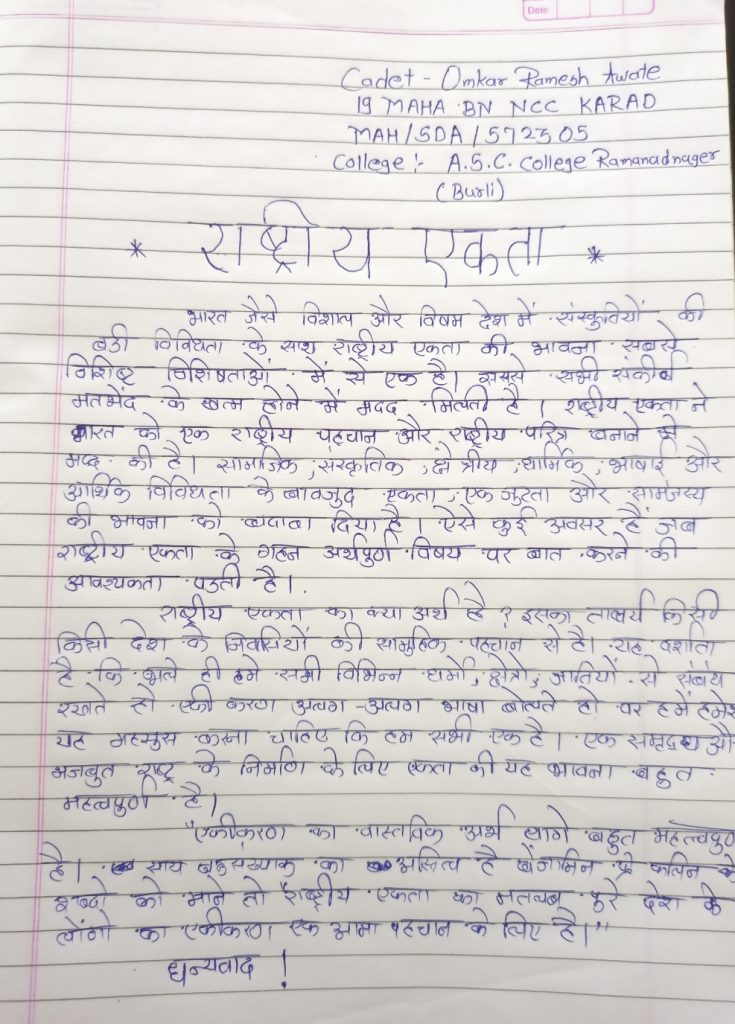 Date
Cadet - Omkar Ramesh Awate
19 MAHA BN NCC KARAD
MAH/SDA/572505
College :- A.S.C. College Ramanadnager
(Burli)
* राष्ट्रीय एकता *
भारत जैसे विशाल और विषम देश में संस्कृतियों की
बडी विविधता के साथ राष्ट्रीय एकता की भावना सबसे
विशिष्ट विशिषताओं में से एक है। इससे सभी संकीर्ण
मतभेद के खत्म होने में मदद मिलती है। राष्ट्रीय एकता ने
भारत को एक राष्ट्रीय पहचान और राष्ट्रीय चरित्र बनाने में
मदद की है। सामाजिक, संस्कृतिक, क्षेत्रीय, धार्मिक, भाषाई और
आर्थिक विविधता के बावजुद एकता, एक जुटता और सामंजस्य
की भावना को बढावा दिया है। ऐसे कई अवसर हैं जब
राष्ट्रीय एकता के गहन अर्थपुर्ण विषय पर बात करने की
आवश्यकता पडती है।
राष्ट्रीय एकता का क्या अर्थ है? इसका तात्पर्य किसी
किसी देश के निवासियों की सामुहिक पहचान से है। यह दर्शाता
है कि भले ही हमे सभी विभिन्न धर्मो, क्षेत्रो, जातियों से संबंध
रखते हो एकी करण अलग-अलग भाषा बोलते हो पर हमें हमेश
यह महसुस करना चाहिए कि हम सभी एक है। एक समृद्ध औ
मजबुत राष्ट्र के निर्माण के लिए एकता की यह भावना बहुत
महत्वपुर्ण है।
"एकीकरण का वास्तविक अर्थ बहुत महत्त्वपुर्ण
है। साथ बहुसंख्यक का अस्तित्व है बेंजामिन फ्रे कलिन के
शब्दो को माने तो "राष्ट्रीय एकता का मतलब पुरे देश के
लोंगो का एकीकरण एक आम पहचान के लिए है।"
धन्यवाद !